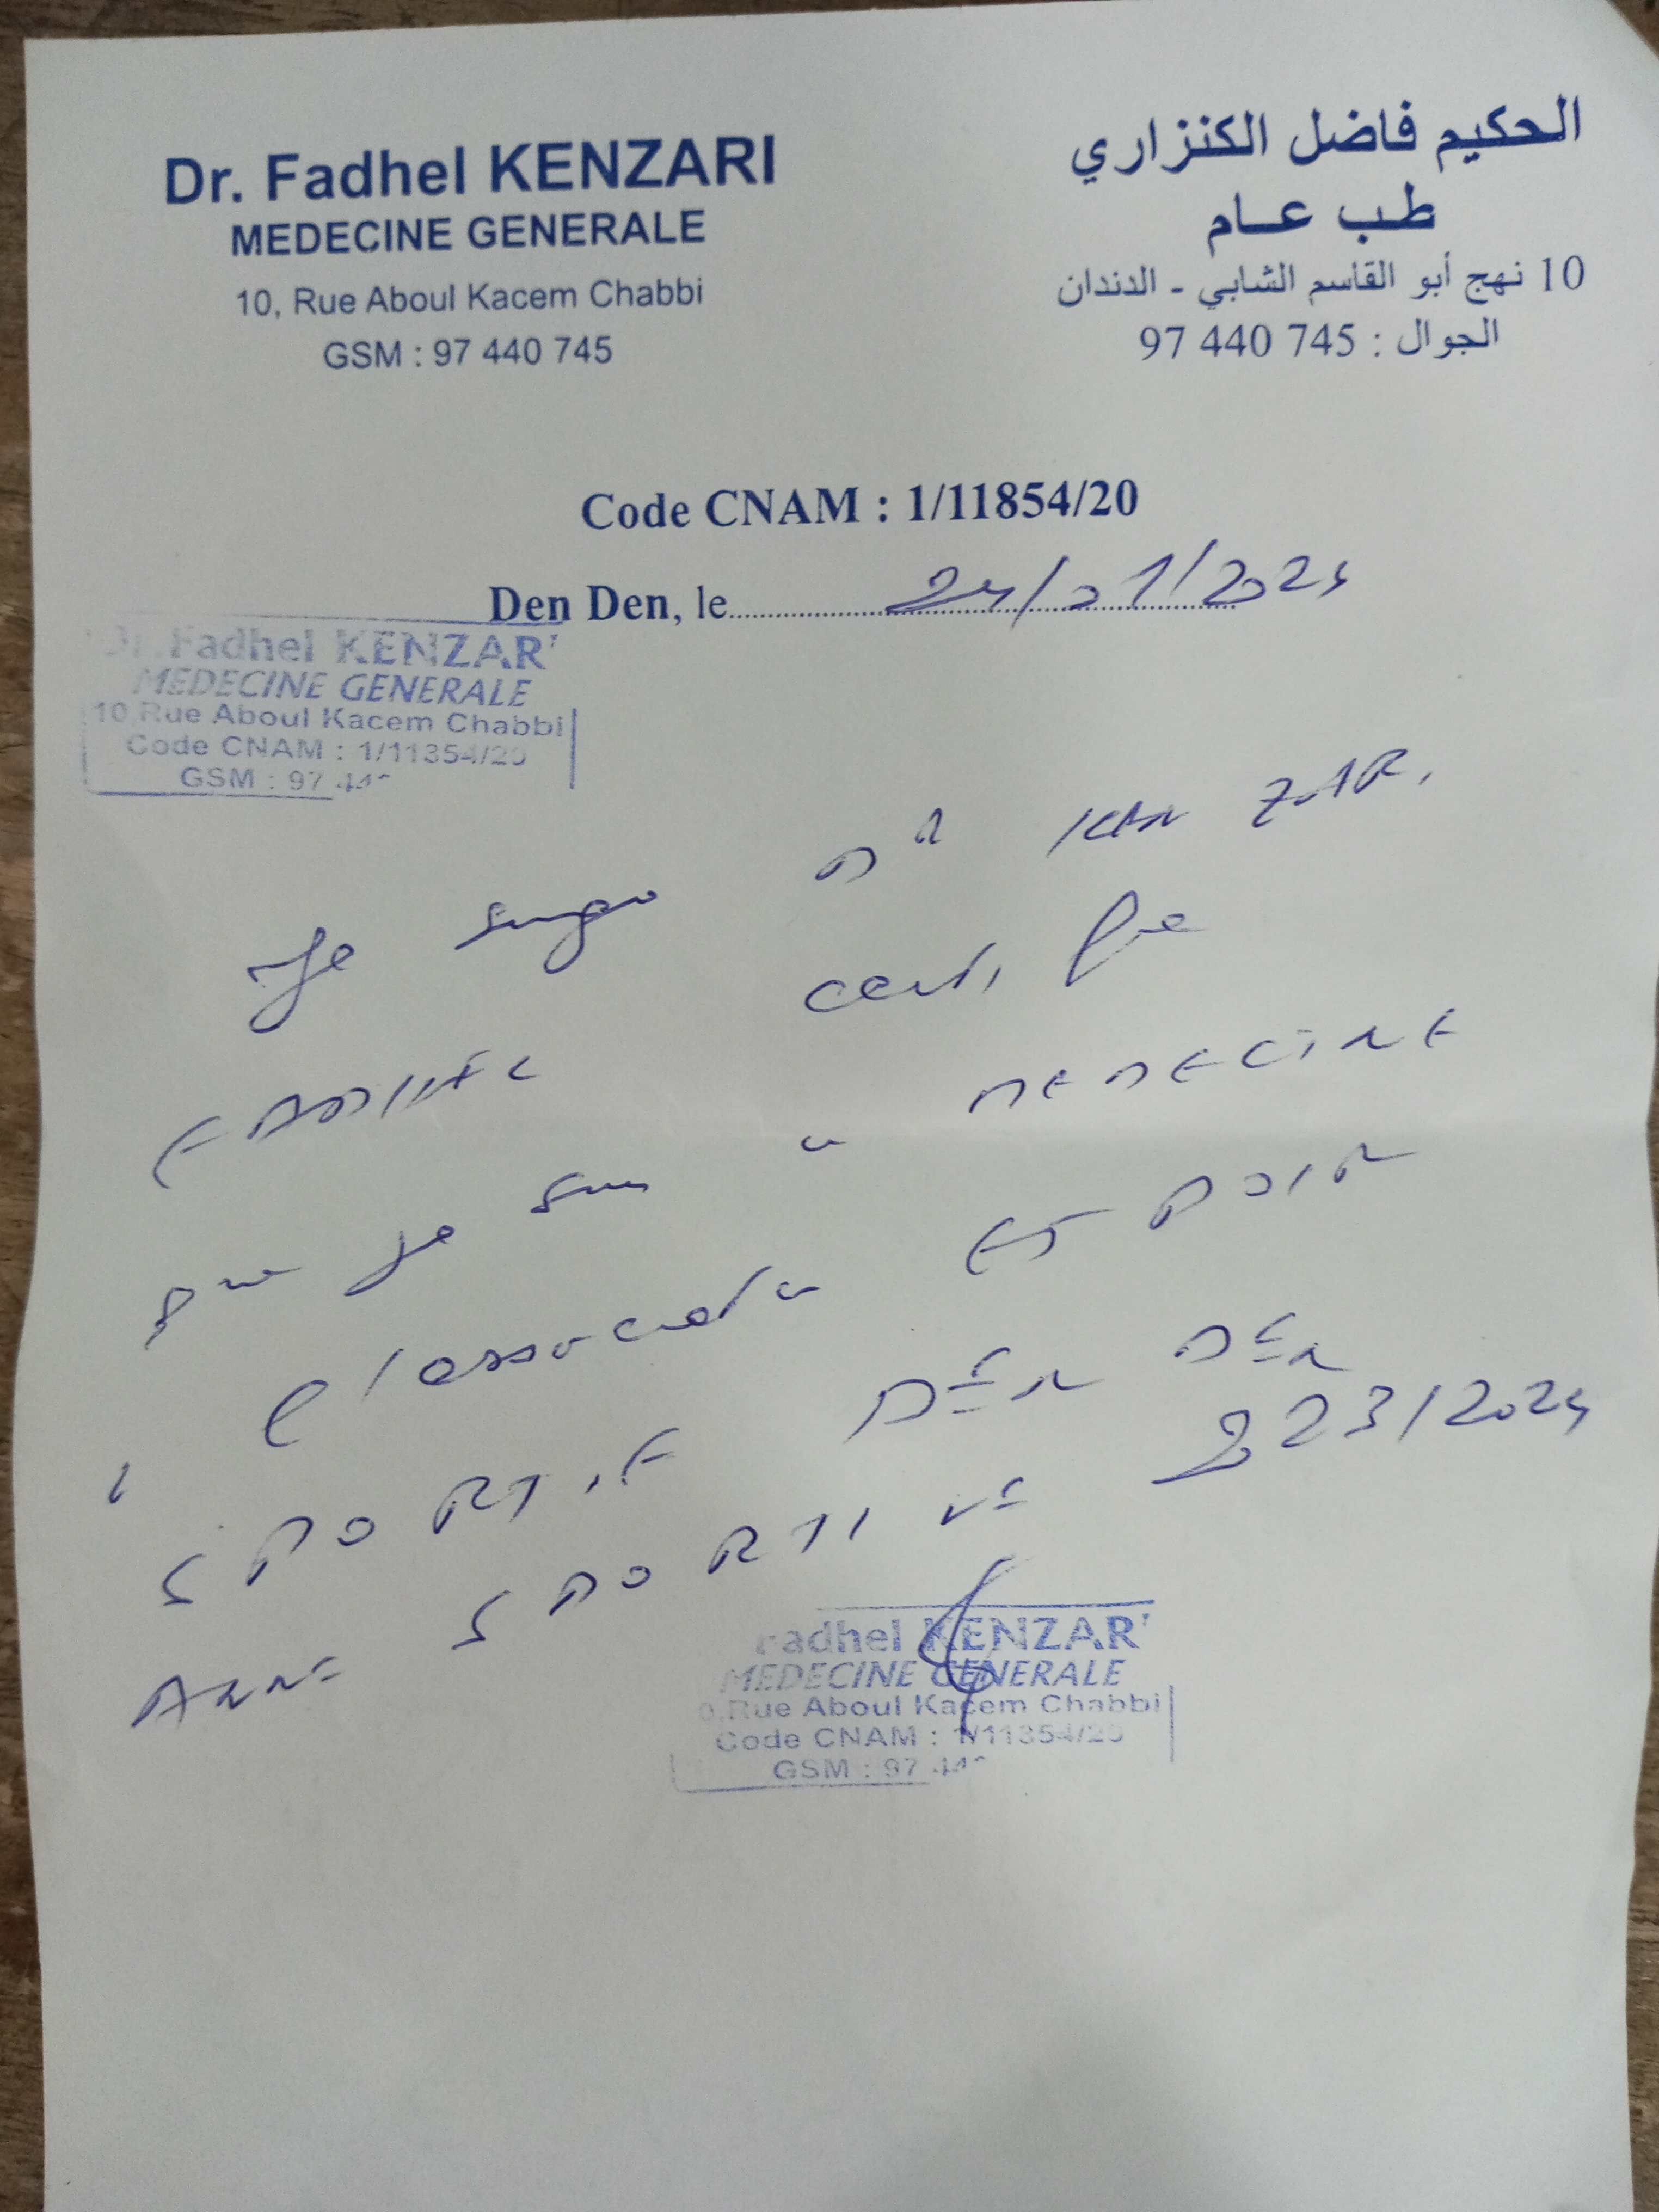 Dr. Fadhel KENZARI
MEDECINE GENERALE
10, Rue Aboul Kacem Chabbi
GSM : 97 440 745
الحكيم فاضل الكنزاري
طب عام
10 نهج أبو القاسم الشابي - الدندان
الجوال : 745 440 97
Code CNAM : 1/11854/20
Den Den, le 24/01/2024
Fadhel KENZAR
MEDECINE GENERALE
10,Rue Aboul Kacem Chabbi
Code CNAM : 1/11354/20
GSM : 97 44
Je KENZARI
FADHEL certifie
que je suis MEDECINE
l'association ESPOIR
SPORTIF DEN DEN
ANNE SPORTIVE 223/2024
Fadhel KENZAR
MEDECINE GENERALE
Rue Aboul Kacem Chabbi
Code CNAM : 1/11354/20
GSM : 97 44